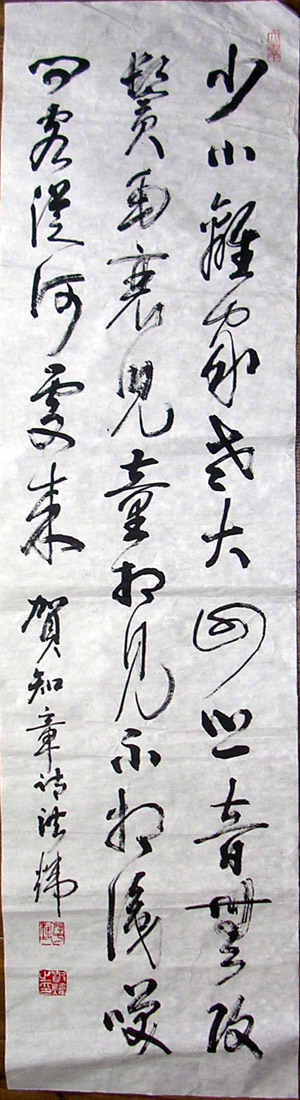 少小離家老大回鄉音無改
鬢毛衰兒童相見不相識咲
問客從何處來 賀知章詩